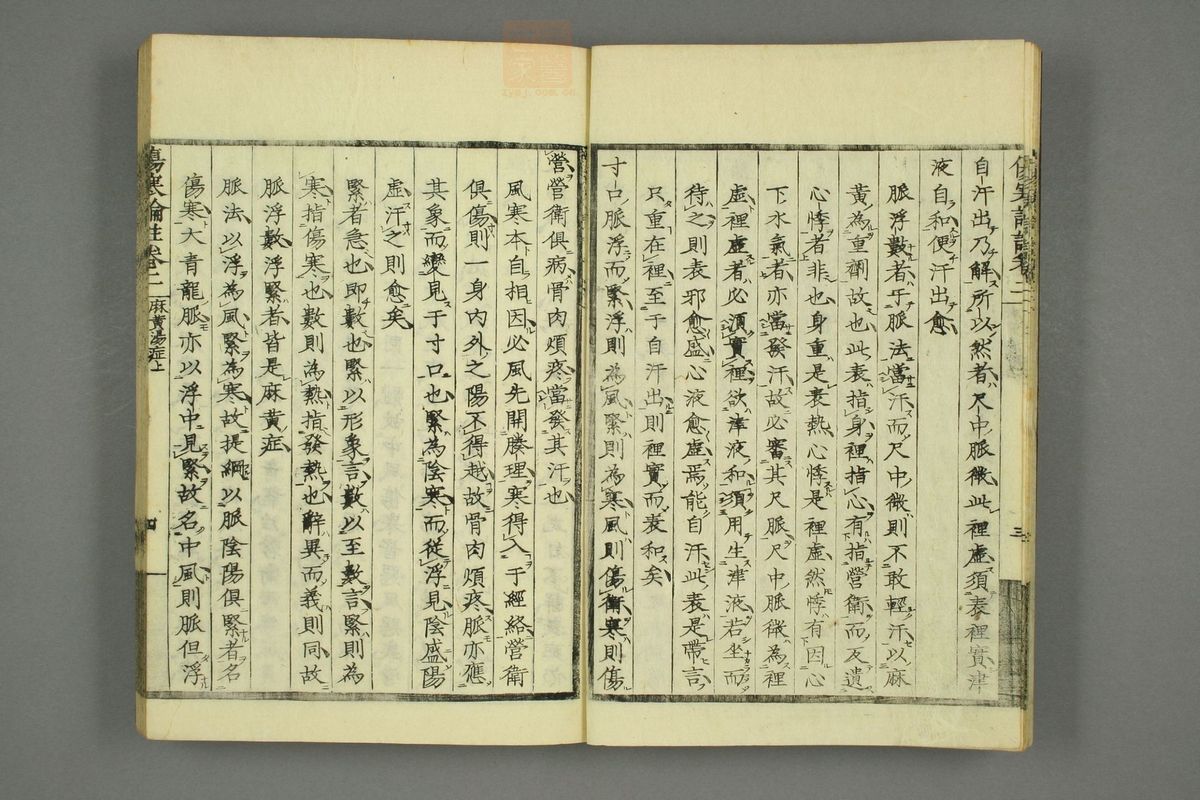 自汗出乃解所以然者尺中脈微此裡虛須表裡實津
液自和便汗出愈
脈浮數者于脈法當汗而尺中微則不敢輕汗以麻
黃為重劑故也此表指身裡指心有指營衛而反遺
心悸者非也身重是表熱心悸是裡虛然悸有因心
下水氣者亦當發汗故必審其尺脈尺中脈微為裡
虛裡虛者必須實裡欲津液和須用生津液若坐而
待之則表邪愈盛心液愈虛焉能自汗此表是帶言
只重在裡至于自汗出則裡實而表和矣
寸口脈浮而緊浮則為風緊則為寒風則傷衛寒則傷
三
營營衛俱病骨肉煩疼當發其汗也
風寒本自相因必風先開腠理寒得入于經絡營衛
俱傷則一身內外之陽不得越故骨肉煩疼脈亦應
其象而變見于寸口也緊為陰寒而從浮見陰盛陽
虛汗之則愈矣
緊者急也即數也緊以形象言數以至數言緊則為
寒指傷寒也數則為熱指發熱也辭異而義則同故
脈浮數浮緊者皆是麻黃症
脈法以浮為風緊為寒故提綱以脈陰陽俱緊者名
傷寒大青龍脈亦以浮中見緊故名中風則脈但浮
傷寒論註卷二 麻黃湯症上 四